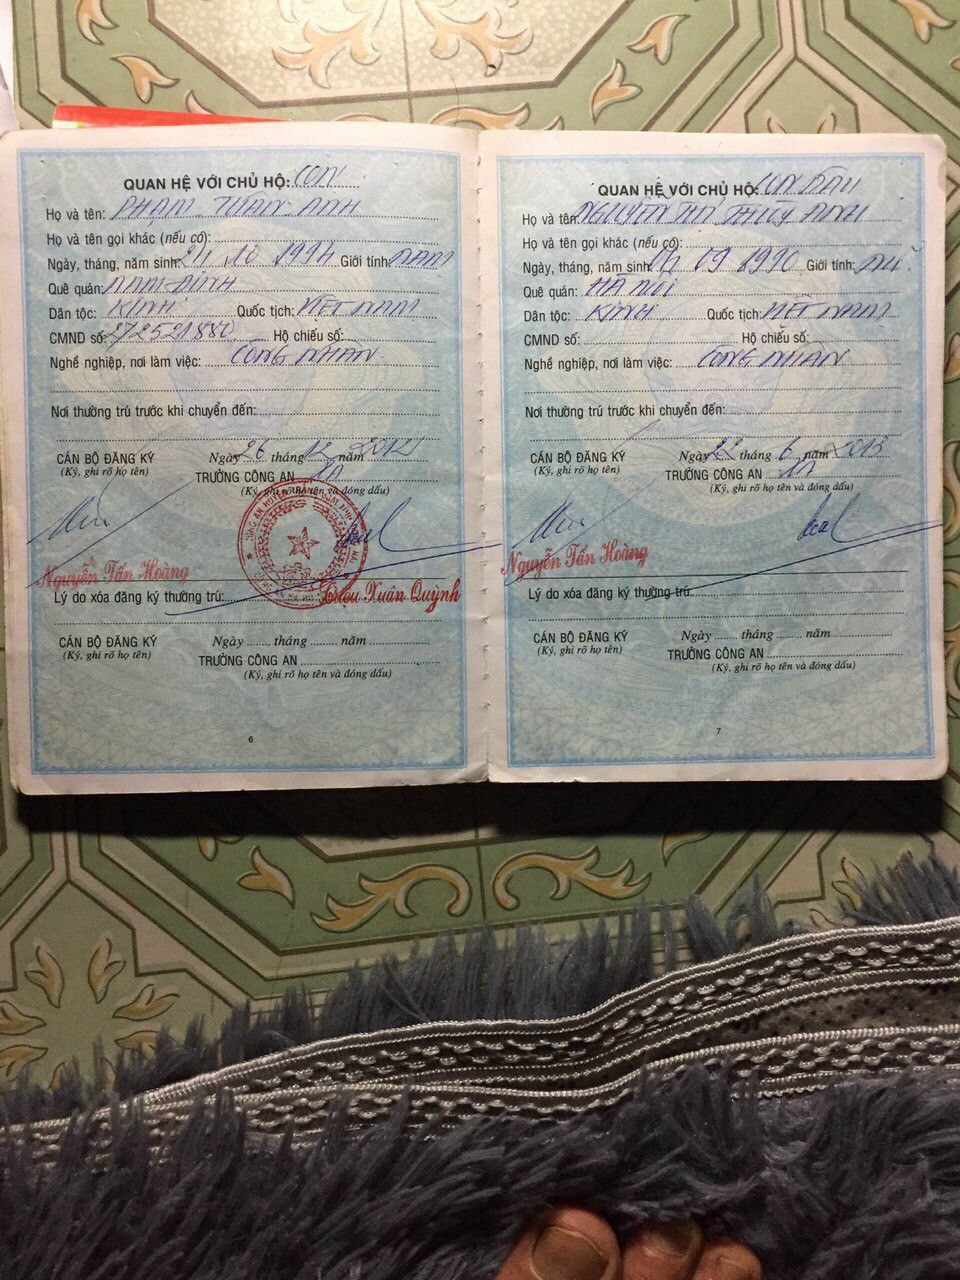 QUAN HỆ VỚI CHỦ HỘ: CON
Họ và tên: PHẠM TUẤN ANH
Họ và tên gọi khác (nếu có):
Ngày, tháng, năm sinh: 10 Giới tính: NAM
Quê quán: NAM ĐỊNH
Dân tộc: KINH Quốc tịch: VIỆT NAM
CMND số: 272521880 Hộ chiếu số:
Nghề nghiệp, nơi làm việc: CÔNG NHÂN
Nơi thường trú trước khi chuyển đến:
CÁN BỘ ĐĂNG KÝ
(Ký, ghi rõ họ tên)
Ngày 26 tháng 12 năm 2012
TRƯỞNG CÔNG AN
(Ký, ghi rõ họ tên và đóng dấu)
Nguyễn Tấn Hoàng
Xuân Quỳnh
Lý do xóa đăng ký thường trú:
CÁN BỘ ĐĂNG KÝ
(Ký, ghi rõ họ tên)
Ngày ...... tháng ...... năm
TRƯỞNG CÔNG AN
(Ký, ghi rõ họ tên và đóng dấu)
6
QUAN HỆ VỚI CHỦ HỘ: CON DÂU
Họ và tên: NGUYỄN THÙY ANH
Họ và tên gọi khác (nếu có):
Ngày, tháng, năm sinh: 09 1990 Giới tính: NỮ
Quê quán: HÀ NỘI
Dân tộc: KINH Quốc tịch: VIỆT NAM
CMND số: Hộ chiếu số:
Nghề nghiệp, nơi làm việc: CÔNG NHÂN
Nơi thường trú trước khi chuyển đến:
CÁN BỘ ĐĂNG KÝ
(Ký, ghi rõ họ tên)
Ngày 22 tháng 6 năm 2013
TRƯỞNG CÔNG AN
(Ký, ghi rõ họ tên và đóng dấu)
Nguyễn Tấn Hoàng
Lý do xóa đăng ký thường trú:
CÁN BỘ ĐĂNG KÝ
(Ký, ghi rõ họ tên)
Ngày ...... tháng ...... năm
TRƯỞNG CÔNG AN
(Ký, ghi rõ họ tên và đóng dấu)
7